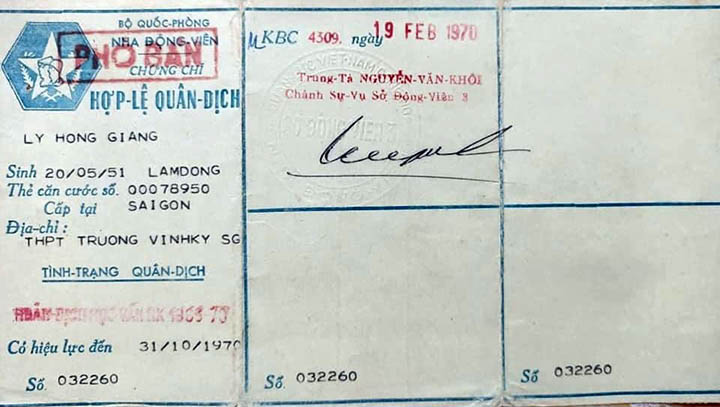 BỘ QUỐC-PHÒNG
NHA ĐỘNG-VIÊN
PHÓ BẢN
CHỨNG CHỈ
HỢP-LỆ QUÂN-DỊCH
LY HONG GIANG
Sinh 20/05/51 LAMDONG
Thẻ căn cước số. 00078950
Cấp tại SAIGON
Địa-chỉ :
THPT TRUONG VINHKY SG
TÌNH-TRẠNG QUÂN-DỊCH
HOÃN-DỊCH HỌC VẤN NK 1969-70
Có hiệu lực đến 31/10/1970
Số 032260
KBC 4309, ngày 19 FEB 1970
Trung-Tá NGUYỄN-VĂN-KHÔI
Chánh Sự-Vụ Sở Động-Viên 3
Số 032260
Số 032260